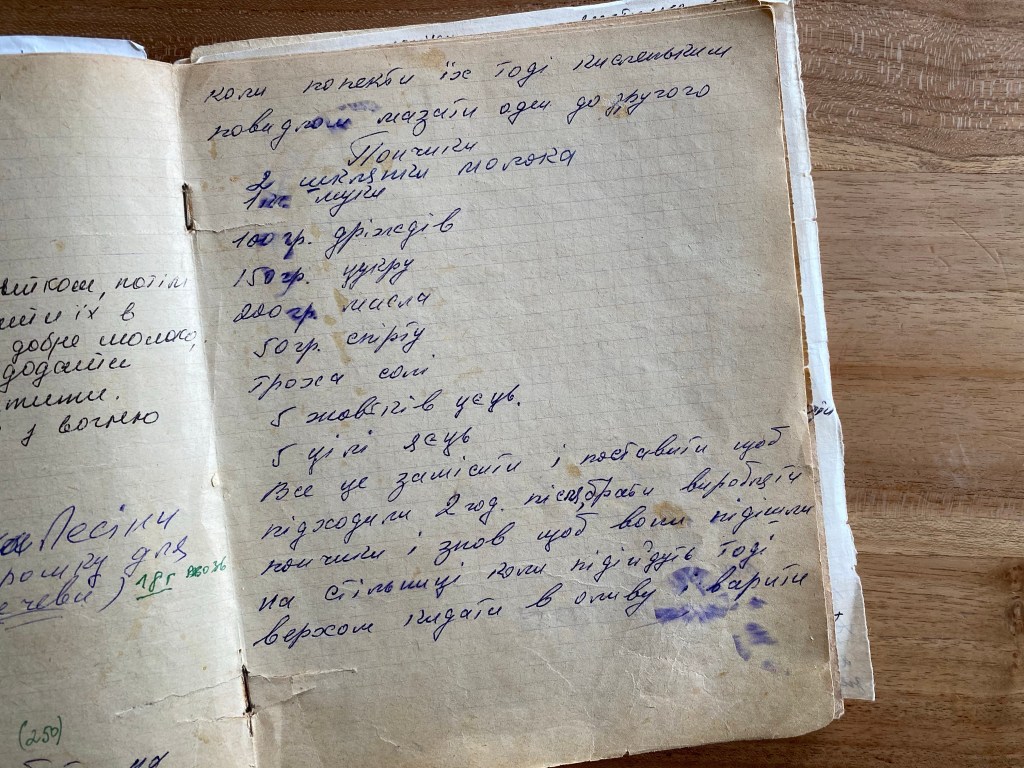 потім
їх в
добре молоко,
додати
з вогню
Лесіни
для
18 г
(250)
на
коли попекти їх тоді кисленьким
повидлом мазати один до другого
Пончики
2 шклянки молока
1 кг муки
100 гр. дріждів
150 гр. цукру
200 гр. масла
50 гр. спірту
троха солі
5 жовтків яєць.
5 цілі яєць
Все це замісити і поставити щоб
підходили 2 год. після, брати виробляти
пончики і знов щоб вони підішли
на стільниці коли підійдуть тоді
верхом кидати в оливу і варити